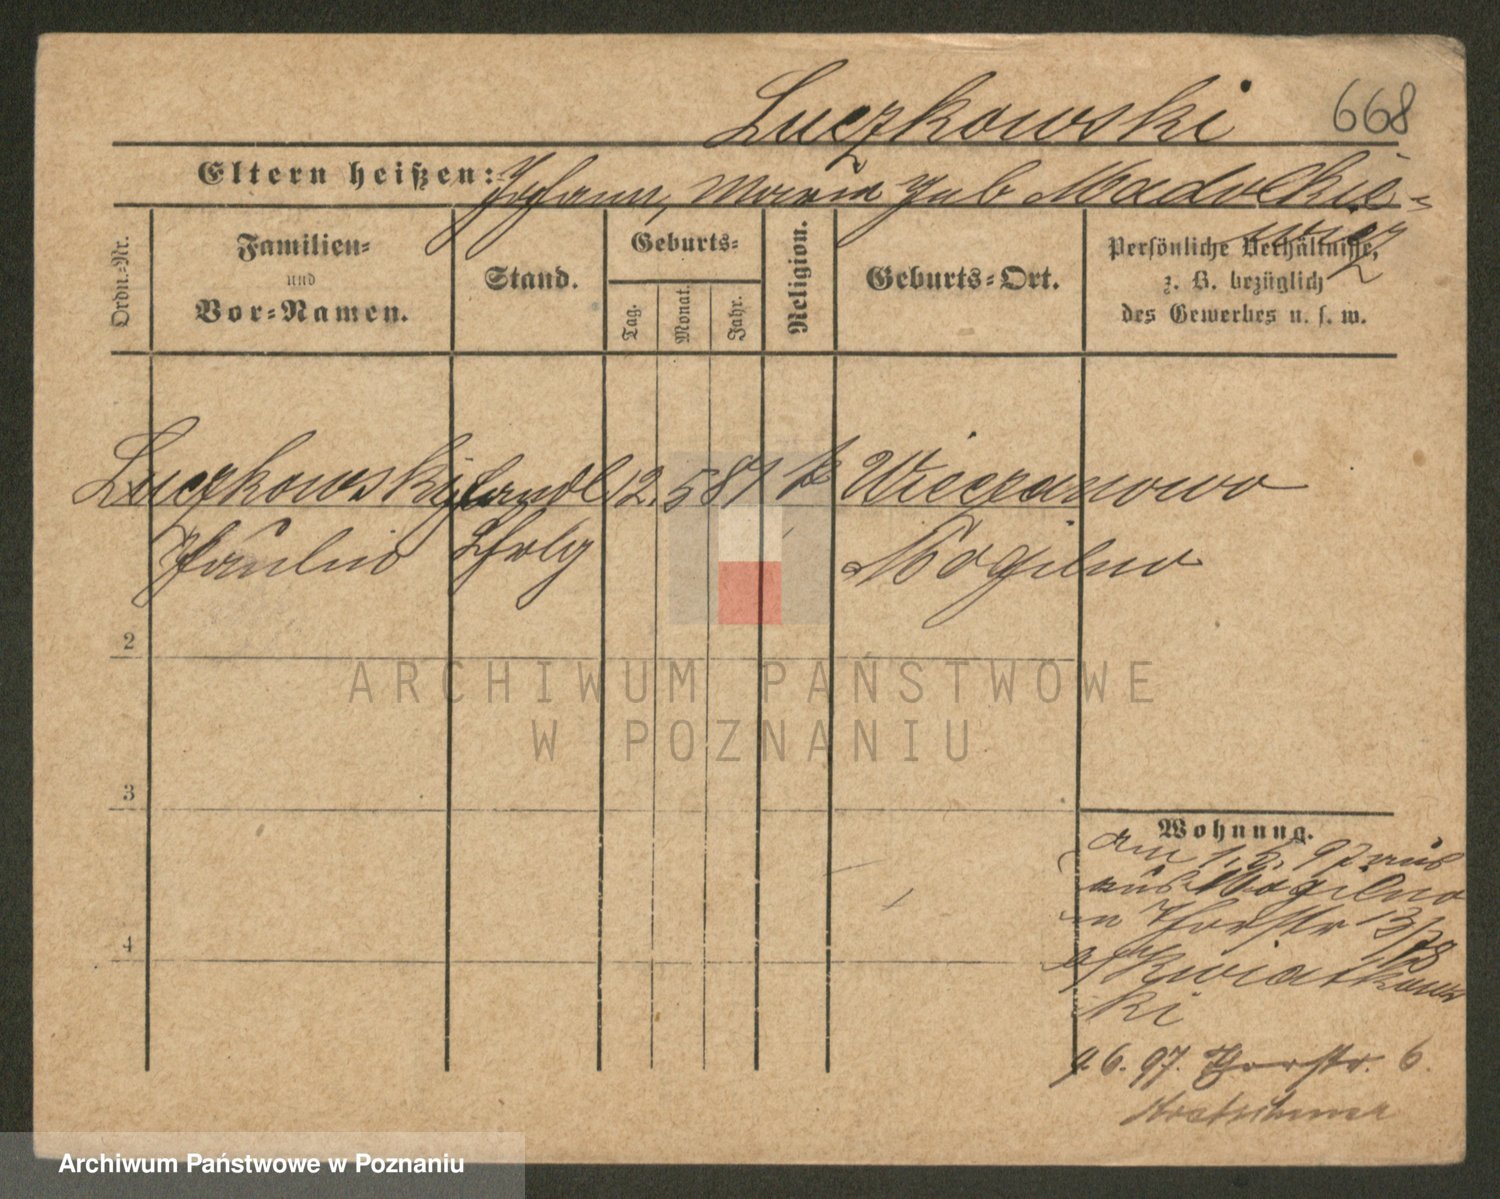 Luczkowski 668
Eltern heißen: Johann, Maria geb Madolkie-
wicz
Ordn.-Nr.
Familien-
und
Vor-Namen.
Stand.
Geburts-
Tag.
Monat.
Jahr.
Religion.
Geburts-Ort.
Persönliche Verhältnisse,
z. B. bezüglich
des Gewerbes u. s. w.
Luczkowski 12. 5 87 k Wieczanowo
Mogilno
2
3
4
Wohnung.
am 1. 5. 97 aus
aus Mogilno
Thorstr 13/78
Kwiatkows
ki
9. 6. 97. Thorstr. 6.
ARCHIWUM PAŃSTWOWE
W POZNANIU
Archiwum Państwowe w Poznaniu